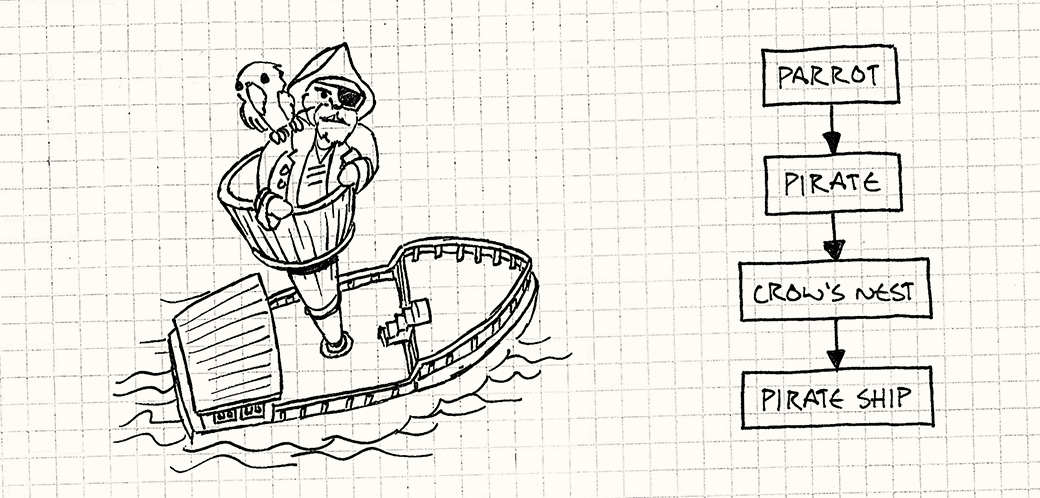 PARROT
PIRATE
CROW'S NEST
PIRATE SHIP